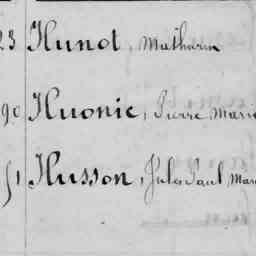 23 Hunot, Mathurin
90 Huonic, Pierre Marie
51 Husson, Jules Paul Mari